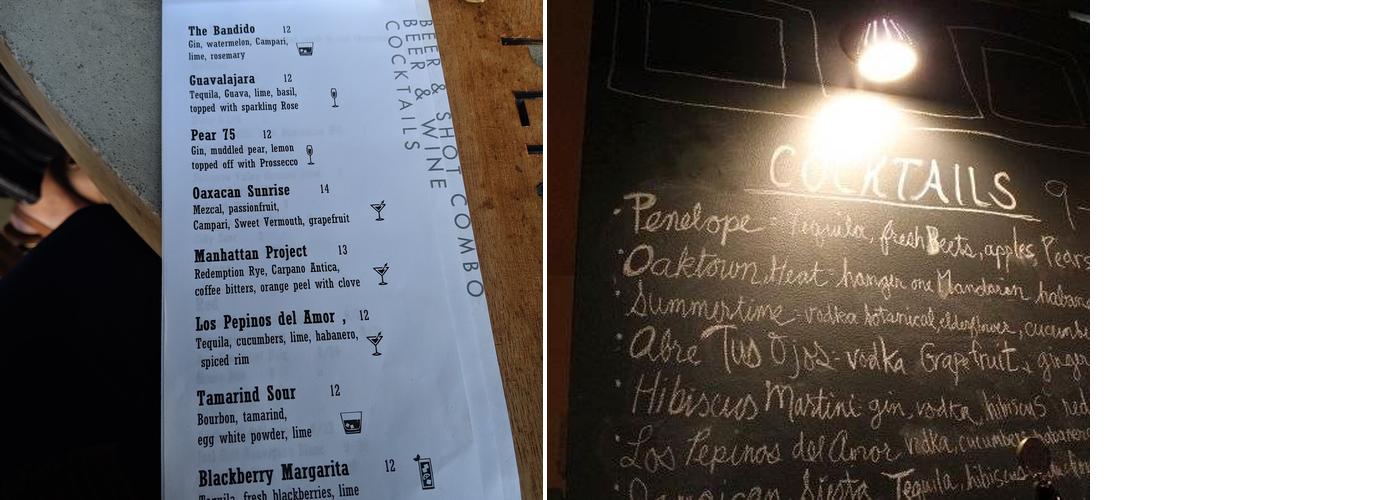 The Bandido 12
Gin, watermelon, Campari,
lime, rosemary
Guavalajara 12
Tequila, Guava, lime, basil,
topped with sparkling Rose
Pear 75 12
Gin, muddled pear, lemon
topped off with Prossecco
Oaxacan Sunrise 14
Mezcal, passionfruit,
Campari, Sweet Vermouth, grapefruit
Manhattan Project 13
Redemption Rye, Carpano Antica,
coffee bitters, orange peel with clove
Los Pepinos del Amor , 12
Tequila, cucumbers, lime, habanero,
spiced rim
Tamarind Sour 12
Bourbon, tamarind,
egg white powder, lime
Blackberry Margarita 12
Tequila, fresh blackberries, lime
BEER & SHOT COMBO
BEER & WINE
COCKTAILS
COCKTAILS 9-
Penelope - Tequila, fresh Beets, apples, Pears
Oaktown Heat - hangar one Mandaren haban
Summertime - vodka botanical, elderflower, cucumbe
Abre Tus Ojos - vodka Grapefruit, ginger
Hibiscus Martini gin, vodka, hibiscus red
Los Pepinos del Amor vodka, cucumber, habanero
Jamaican Siesta Tequila, hibiscus